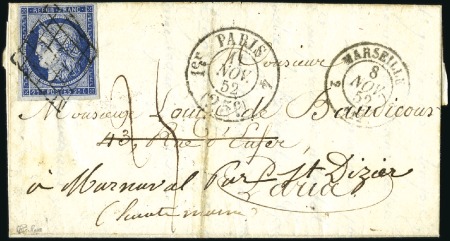 REPUB. FRANC.
25 POSTES 25
1er PARIS 1er
11
NOV.
52
MARSEILLE
8
NOV.
52
2
Monsieur
Monsieur Louis de Baudicour
43, Rue d'Enfer,
à Marnaval Par St Dizier
Paris
(haute marne)
25